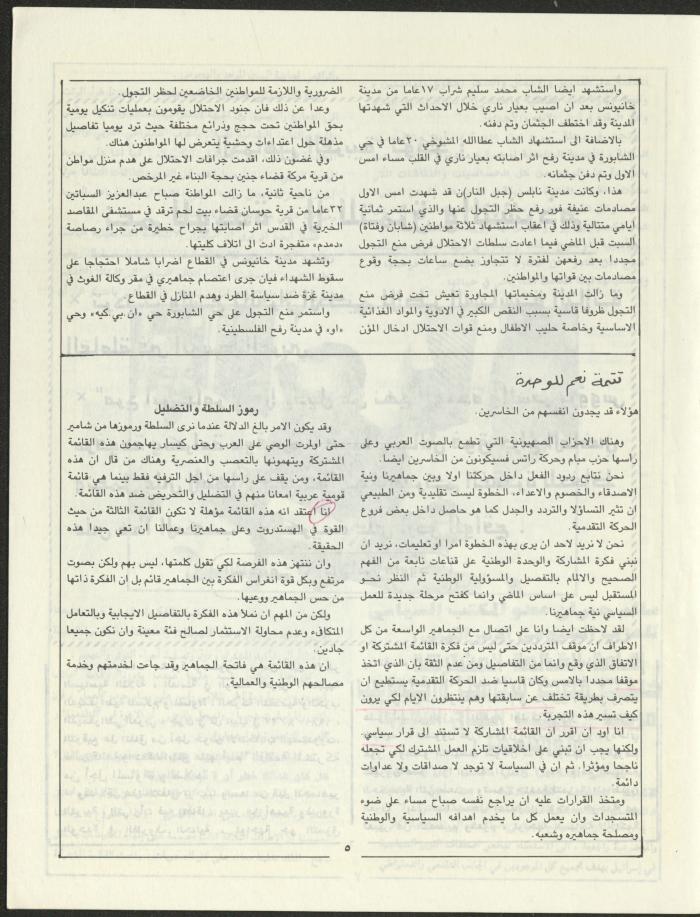 واستشهد ايضا الشاب محمد سليم شراب ١٧عاما من مدينة
خانيونس بعد ان اصيب بعيار ناري خلال الاحداث التي شهدتها
المدينة وقد اختطف الجثمان وتم دفنه.
بالاضافة الى استشهاد الشاب عطاالله المشوخي ٢٠عاما في حي
الشابورة في مدينة رفح اثر اصابته بعيار ناري في القلب مساء امس
الاول وتم دفن جثمانه.
هذا، وكانت مدينة نابلس (جبل النار)ن قد شهدت امس الاول
مصادمات عنيفة فور رفع حظر التجول عنها والذي استمر ثمانية
ايامي متتالية وذلك في اعقاب استشهاد ثلاثة مواطنين (شابان وفتاة)
السبت قبل الماضي فيما اعادت سلطات الاحتلال فرض منع التجول
مجددا بعد رفعهن لفترة لا تتجاوز بضع ساعات بحجة وقوع
مصادمات بين قواتها والمواطنين.
وما زالت المدينة ومخيماتها المجاورة تعيش تحت فرض منع
التجول ظروفا قاسية بسبب النقص الكبير في الادوية والمواد الغذائية
الاساسية وخاصة حليب الاطفال ومنع قوات الاحتلال ادخال المؤن
الضرورية واللازمة للمواطنين الخاضعين لحظر التجول.
وعدا عن ذلك فان جنود الاحتلال يقومون بعمليات تنكيل يومية
بحق المواطنين تحت حجج وذرائع مختلفة حيث ترد يوميا تفاصيل
مذهلة حول اعتداءات وحشية يتعرض لها المواطنون هناك.
وفي غضون ذلك، اقدمت جرافات الاحتلال على هدم منزل مواطن
من قرية مركة قضاء جنين بحجة البناء غير المرخص.
من ناحية ثانية، ما زالت المواطنة صباح عبدالعزيز السباتين
٣٢عاما من قرية حوسان قضاء بيت لحم ترقد في مستشفى المقاصد
الخيرية في القدس اثر اصابتها بجراح خطيرة من جراء رصاصة
«دمدم» متفجرة ادت الى اتلاف كليتها.
وتشهد مدينة خانيونس في القطاع اضرابا شاملا احتجاجا على
سقوط الشهداء فيان جرى اعتصام جماهيري في مقر وكالة الغوث في
مدينة غزة ضد سياسة الطرد وهدم المنازل في القطاع.
واستمر منع التجول على حي الشابورة حي «ان.بي.كيه» وحي
«او» في مدينة رفح الفلسطينية.
تتمة نعم للوحدة
هؤلاء قد يجدون انفسهم من الخاسرين.
وهناك الاحزاب الصهيونية التي تطمع بالصوت العربي وعلى
رأسها حزب مبام وحركة راتس فسيكونون من الخاسرين ايضا.
نحن نتابع ردود الفعل داخل حركتنا اولا وبين جماهيرنا ونية
الاصدقاء والخصوم والاعداء، الخطوة ليست تقليدية ومن الطبيعي
ان تثير التساؤلا والتردد والجدل كما هو حاصل داخل بعض فروع
الحركة التقدمية.
نحن لا نريد لاحد ان يرى بهذه الخطوة امرا او تعليمات، نريد ان
نبني فكرة المشاركة والوحدة الوطنية على قناعات نابعة من الفهم
الصحيح والالمام بالتفصيل والمسؤولية الوطنية ثم النظر نحو
المستقبل ليس على اساس الماضي وانما كفتح مرحلة جديدة للعمل
السياسي نية جماهيرنا.
لقد لاحظت ايضا وانا على اتصال مع الجماهير الواسعة من كل
الاطراف ان موقف المترددين حتى ليس من فكرة القائمة المشتركة او
الاتفاق الذي وقع وانما من التفاصيل ومن عدم الثقة بان الذي اتخذ
موقفا محددا بالامس وكان قاسيا ضد الحركة التقدمية يستطيع ان
يتصرف بطريقة تختلف عن سابقتها وهم ينتظرون الايام لكي يرون
كيف تسير هذه التجربة.
انا اود ان اقرر ان القائمة المشاركة لا تستند الى قرار سياسي
ولكنها يجب ان تبني على اخلاقيات تلزم العمل المشترك لكي تجعله
ناجحا ومؤثرا. ثم ان في السياسة لا توجد لا صداقات ولا عداوات
دائمة.
ومتخذ القرارات عليه ان يراجع نفسه صباح مساء على ضوء
المتسجدات وان يعمل كل ما يخدم اهدافه السياسية والوطنية
ومصلحة جماهيره وشعبه.
رموز السلطة والتضليل
وقد يكون الامر بالغ الدلالة عندما نرى السلطة ورموزها من شامير
حتى اولمرت الوصي على العرب وحتى كيسار يهاجمون هذه القائمة
المشتركة ويتهمونها بالتعصب والعنصرية وهناك من قال ان هذه
القائمة، ومن يقف على راسها من اجل الترفيه فقط بينما هي قائمة
قومية عربية امعانا منهم في التضليل والتحريض ضد هذه القائمة.
انا اعتقد انه هذه القائمة مؤهلة لا تكون القائمة الثالثة من حيث
القوة في الهستدروت وعلى جماهيرنا وعمالنا ان تعي جيدا هذه
الحقيقة.
وان ننتهز هذه الفرصة لكي تقول كلمتها، ليس بهم ولكن بصوت
مرتفع وبكل قوة انغراس الفكرة بين الجماهير قائم بل ان الفكرة ذاتها
من حس الجماهير ووعيها.
ولكن من المهم ان نملأ هذه الفكرة بالتفاصيل الايجابية وبالتعامل
المتكافىء وعدم محاولة الاستثمار لصالح فئة معينة وان نكون جميعا
جادين.
ان هذه القائمة هي فاتحة الجماهير وقد جاءت لخدمتهم وخدمة
مصالحهم الوطنية والعمالية.
٥